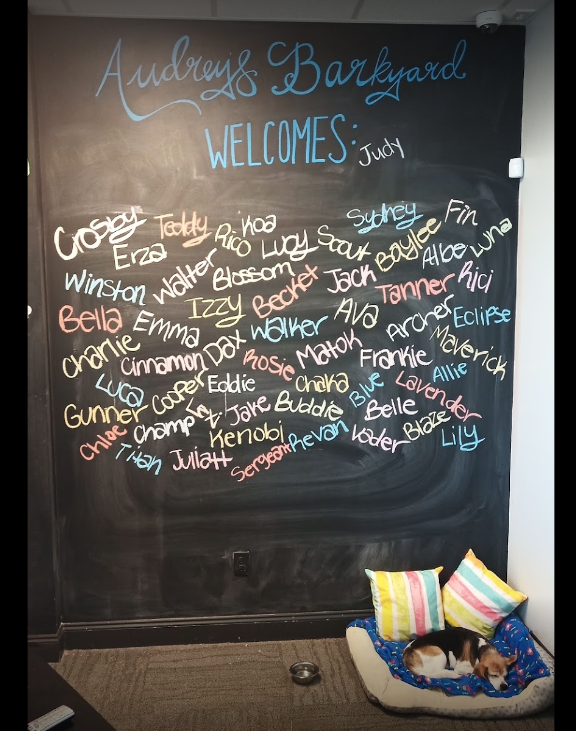 Audrey's Barkyard
WELCOMES: Judy
Crosby Teddy Koa Sydney Fin
Erza Rico Lucy Scout Baylee Albe Luna
Winston Walter Blossom Becket Jack Tanner Rici
Bella Emma Izzy Walker Ava Archer Eclipse
Charlie Cinnamon Dax Rosie Matok Frankie Maverick
Luca Cooper Eddie Chaka Blue Lavender Allie
Gunner Champ Jake Buddie Belle Blaze
Chloe Kenobi Revan Vader Lily
Titan Sergeant